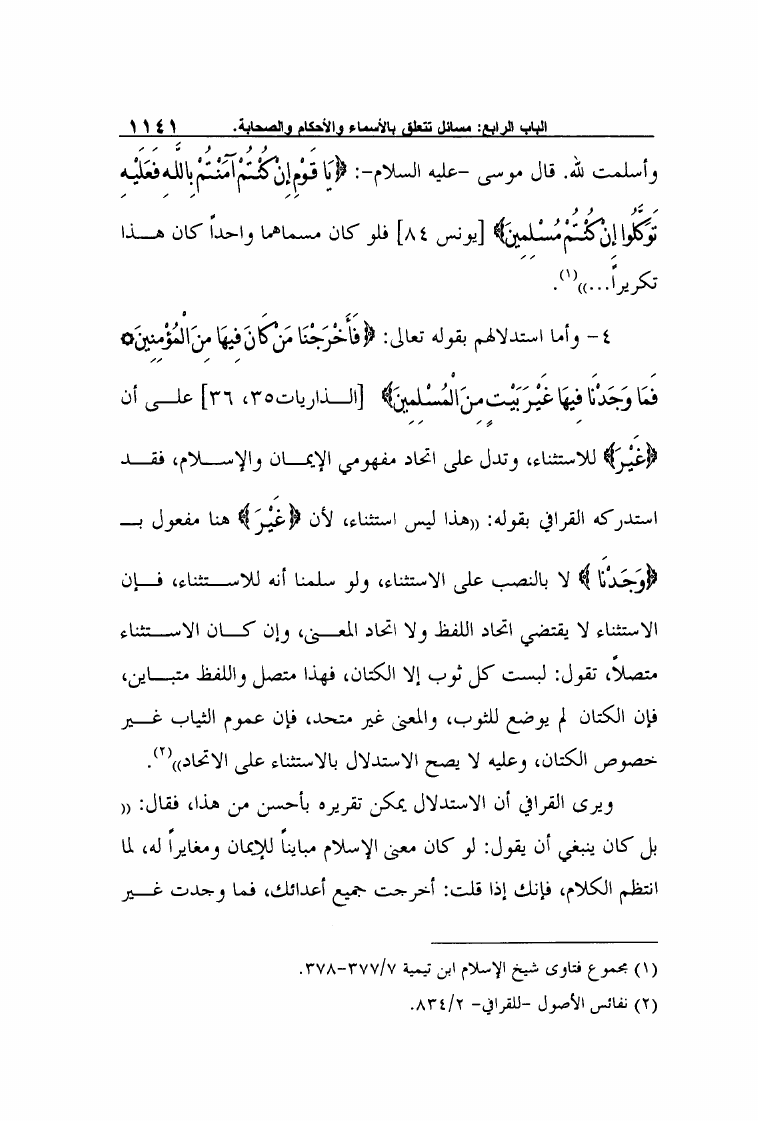 الباب الرابع: مسائل تتعلق بالأسماء والأحكام والصحابة. ١١٤١
وأسلمت لله. قال موسى -عليه السلام-: ﴿يَا قَوْمِ إِنْ كُنْتُمْ آمَنْتُمْ بِاللَّهِ فَعَلَيْهِ
تَوَكَّلُوا إِنْ كُنْتُمْ مُسْلِمِينَ﴾ [يونس ٨٤] فلو كان مسماهما واحداً كان هـذا
تكريراً...))(١).
٤- وأما استدلالهم بقوله تعالى: ﴿فَأَخْرَجْنَا مَنْ كَانَ فِيهَا مِنَ الْمُؤْمِنِينَ ۞
فَمَا وَجَدْنَا فِيهَا غَيْرَ بَيْتٍ مِنَ الْمُسْلِمِينَ﴾ [الـذاريات٣٥، ٣٦] علـى أن
﴿غَيْرَ﴾ للاستثناء، وتدل على اتحاد مفهومي الإيمـان والإسـلام، فقـد
استدركه القرافي بقوله: ((هذا ليس استثناء، لأن ﴿غَيْرَ﴾ هنا مفعول بـ
﴿وَجَدْنَا﴾ لا بالنصب على الاستثناء، ولو سلمنا أنه للاسـتثناء، فـإن
الاستثناء لا يقتضي اتحاد اللفظ ولا اتحاد المعـنى، وإن كـان الاسـتثناء
متصلاً، تقول: لبست كل ثوب إلا الكتان، فهذا متصل واللفظ متبـاين،
فإن الكتان لم يوضع للثوب، والمعنى غير متحد، فإن عموم الثياب غـير
خصوص الكتان، وعليه لا يصح الاستدلال بالاستثناء على الاتحاد))(٢).
ويرى القرافي أن الاستدلال يمكن تقريره بأحسن من هذا، فقال: ((
بل كان ينبغي أن يقول: لو كان معنى الإسلام مبايناً للإيمان ومغايراً له، لما
انتظم الكلام، فإنك إذا قلت: أخرجت جميع أعدائك، فما وجدت غـير
(١) مجموع فتاوى شيخ الإسلام ابن تيمية ٣٧٧/٧-٣٧٨.
(٢) نفائس الأصول -للقرافي- ٨٣٤/٢.